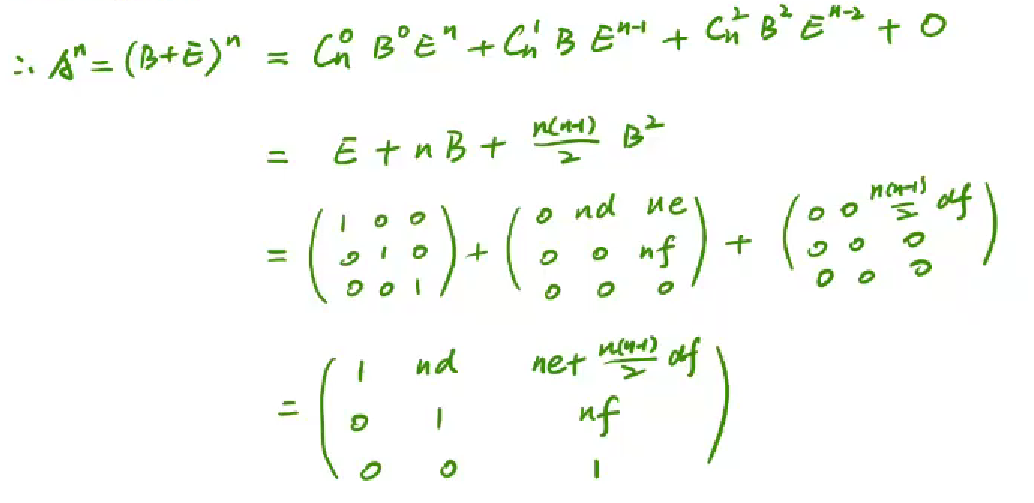 ∴ Aⁿ = (B+E)ⁿ = Cₙ⁰ B⁰ Eⁿ + Cₙ¹ B Eⁿ⁻¹ + Cₙ² B² Eⁿ⁻² + 0
= E + nB + n(n-1)/2 B²
= (1 0 0; 0 1 0; 0 0 1) + (0 nd ne; 0 0 nf; 0 0 0) + (0 0 n(n-1)/2 df; 0 0 0; 0 0 0)
= (1 nd ne+ n(n-1)/2 df; 0 1 nf; 0 0 1)